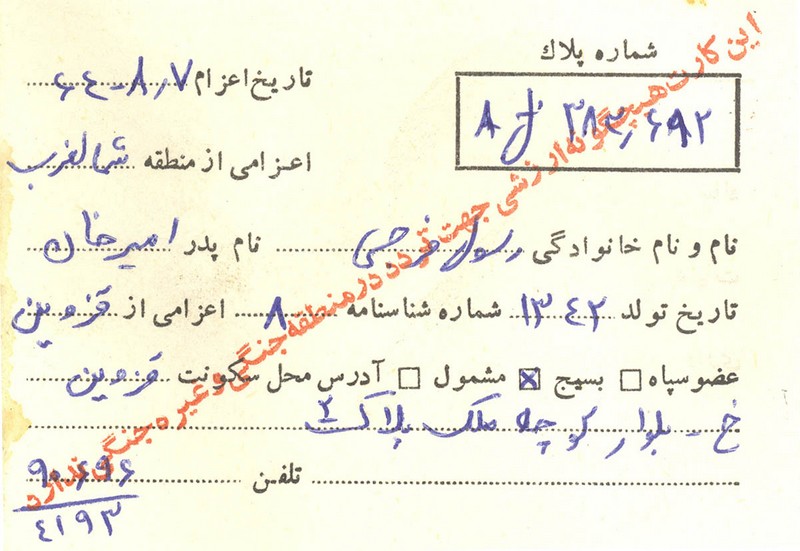 شماره پلاك
۳۸۲,۶۹۲ ل ۸
تاریخ اعزام ۷ر۸-۶٤
اعزامی از منطقه شمالغرب
نام و نام خانوادگی رسول فرجی نام پدر امیرخان
تاریخ تولد ۱۳٤۲ شماره شناسنامه ۸ اعزامی از قزوین
عضو سپاه بسیج مشمول آدرس محل سکونت قزوین
خ - بلوار کوچه ملک پلاک ۲
تلفن ۹۰۶۹۶
٤۱۹۳
این کارت هیچگونه ارزشی جهت تردد در منطقه جنگی و غیره جنگی ندارد